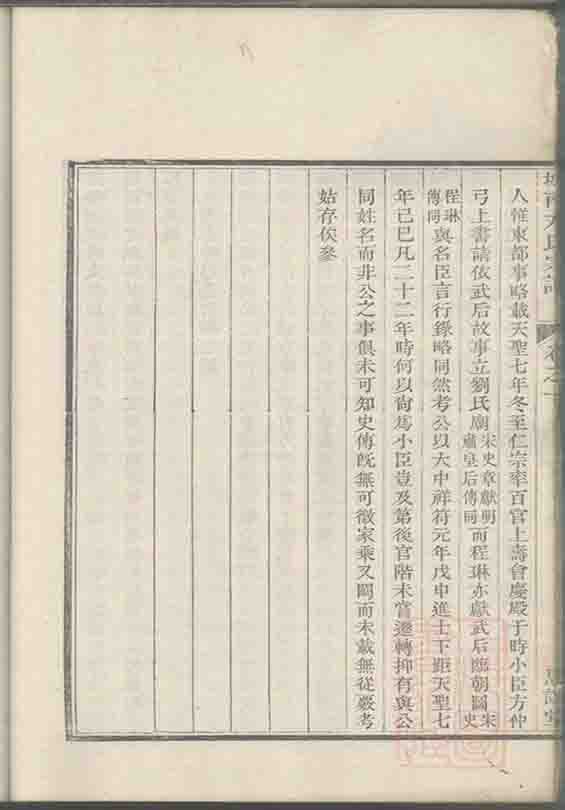 方氏宗譜
卷之一
人惟東都事略載天聖七年冬至仁宗率百官上壽會慶殿于時小臣方仲
弓上書請依武后故事立劉氏廟宋史章獻明肅皇后傳同而程琳亦獻武后臨朝圖宋史
程琳傳同與名臣言行錄略同然考公以大中祥符元年戊申進士下距天聖七
年己巳凡二十二年時何以尙爲小臣豈及第後官階未嘗遷轉抑有與公
同姓名而非公之事俱未可知史傳旣無可徵家乘又闕而未載無從覈考
姑存俟參